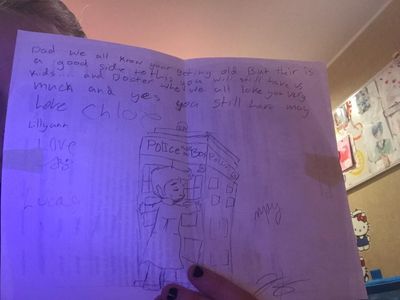 Dad we all know your geting old But thir is
a good side to this you will still have us
kids... and Doctor Who! we all love you very
much and yes you still have may
Love Chloe
Lillyann
Love
Lucac
Police Box Police